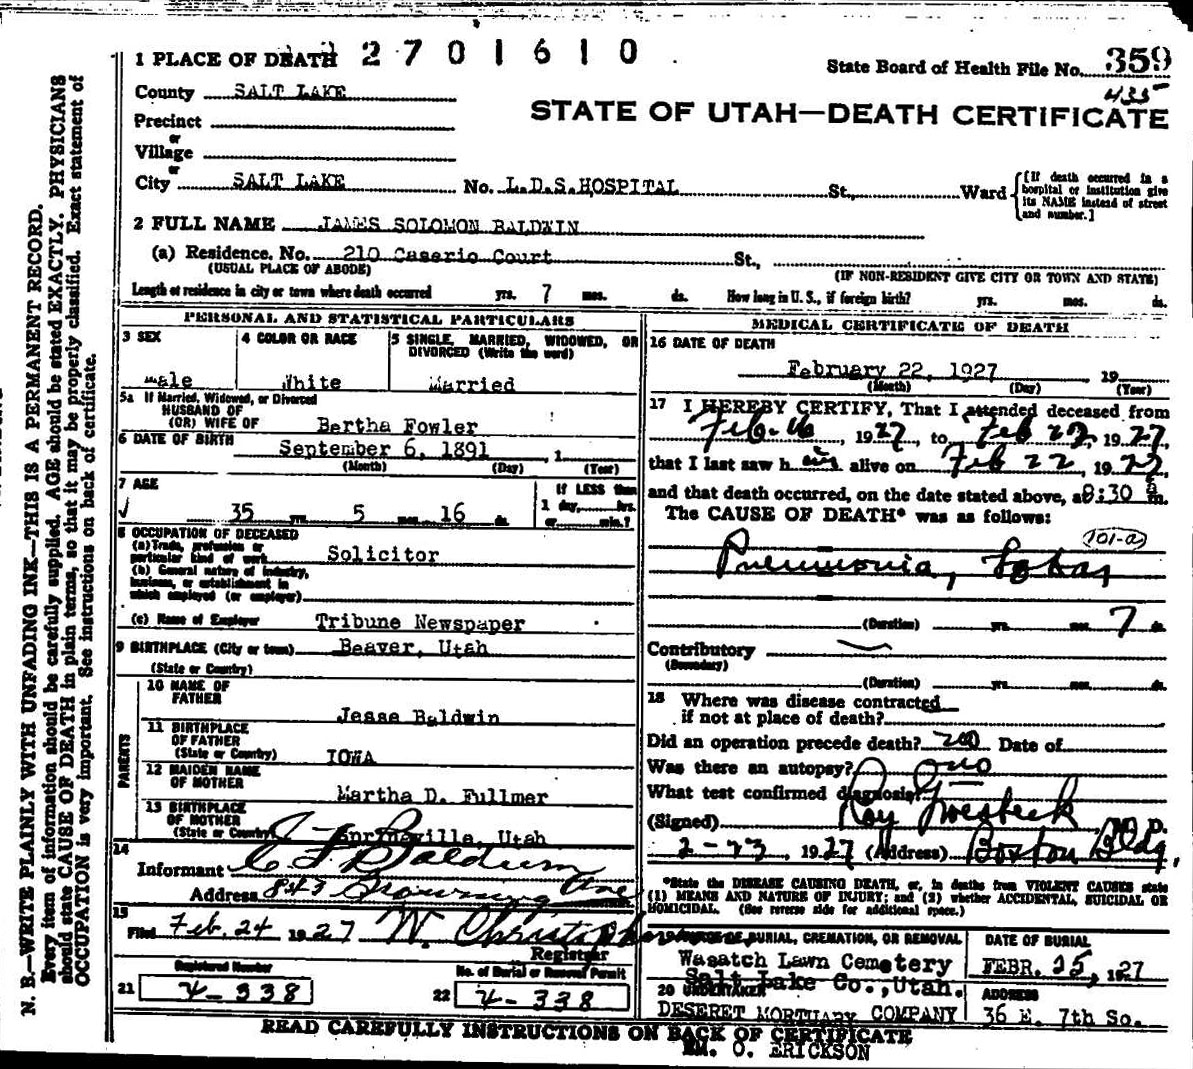 1 PLACE OF DEATH 2701610
State Board of Health File No. 359
435
County SALT LAKE
STATE OF UTAH—DEATH CERTIFICATE
Precinct
or
Village
or
City SALT LAKE No. L.D.S. HOSPITAL St., Ward
[If death occurred in a hospital or institution give its NAME instead of street and number.]
2 FULL NAME JAMES SOLOMON BALDWIN
(a) Residence. No. 210 Caserio Court St.,
(USUAL PLACE OF ABODE) (IF NON-RESIDENT GIVE CITY OR TOWN AND STATE)
Length of residence in city or town where death occurred yrs. 7 mos. ds. How long in U. S., if foreign birth? yrs. mos. ds.
PERSONAL AND STATISTICAL PARTICULARS
3 SEX
male
4 COLOR OR RACE
White
5 SINGLE, MARRIED, WIDOWED, OR DIVORCED (Write the word)
Married
5a If Married, Widowed, or Divorced
HUSBAND OF
(OR) WIFE OF Bertha Fowler
6 DATE OF BIRTH September 6, 1891 , 1
(Month) (Day) (Year)
7 AGE
35 yrs. 5 mos. 16 ds.
If LESS than
1 day, hrs.
or min.?
8 OCCUPATION OF DECEASED
(a) Trade, profession or
particular kind of work Solicitor
(b) General nature of industry,
business, or establishment in
which employed (or employer)
(c) Name of Employer Tribune Newspaper
9 BIRTHPLACE (City or town) Beaver, Utah
(State or Country)
PARENTS
10 NAME OF
FATHER
Jesse Baldwin
11 BIRTHPLACE
OF FATHER
(State or Country) IOWA
12 MAIDEN NAME
OF MOTHER
Martha D. Fullmer
13 BIRTHPLACE
OF MOTHER
(State or Country) Springville, Utah
14
Informant Baldwin
Address 843 Ave
15
Filed Feb. 24 1927 W. Christopherson
Registrar
Registered Number
21 4-338
No. of Burial or Removal Permit
22 4-338
MEDICAL CERTIFICATE OF DEATH
16 DATE OF DEATH
February 22, 1927 19
(Month) (Day) (Year)
17 I HEREBY CERTIFY, That I attended deceased from
Feb. 16, 1927, to Feb 22, 1927,
that I last saw him alive on Feb 22, 1927
and that death occurred, on the date stated above, at 8:30 a m.
The CAUSE OF DEATH* was as follows:
101-a
Pneumonia, Lobar
(Duration) yrs. mos. 7 ds.
Contributory
(Secondary)
(Duration) yrs. mos. ds.
18 Where was disease contracted
if not at place of death?
Did an operation precede death? no Date of
Was there an autopsy? no
What test confirmed diagnosis?
(Signed) Ray Groesbeck M. D.
2-23, 1927 (Address) Boston Bldg.
*State the DISEASE CAUSING DEATH, or, in deaths from VIOLENT CAUSES state
(1) MEANS AND NATURE OF INJURY; and (2) whether ACCIDENTAL, SUICIDAL OR
HOMICIDAL. (See reverse side for additional space.)
19 PLACE OF BURIAL, CREMATION, OR REMOVAL
Wasatch Lawn Cemetery
Salt Lake Co., Utah.
DATE OF BURIAL
FEBR. 25, 1927
20 UNDERTAKER
DESERET MORTUARY COMPANY
ADDRESS
36 E. 7th So.
READ CAREFULLY INSTRUCTIONS ON BACK OF CERTIFICATE
WM. O. ERICKSON
N. B.—WRITE PLAINLY WITH UNFADING INK—THIS IS A PERMANENT RECORD.
Every item of information should be carefully supplied. AGE should be stated EXACTLY. PHYSICIANS
should state CAUSE OF DEATH in plain terms, so that it may be properly classified. Exact statement of
OCCUPATION is very important. See instructions on back of certificate.